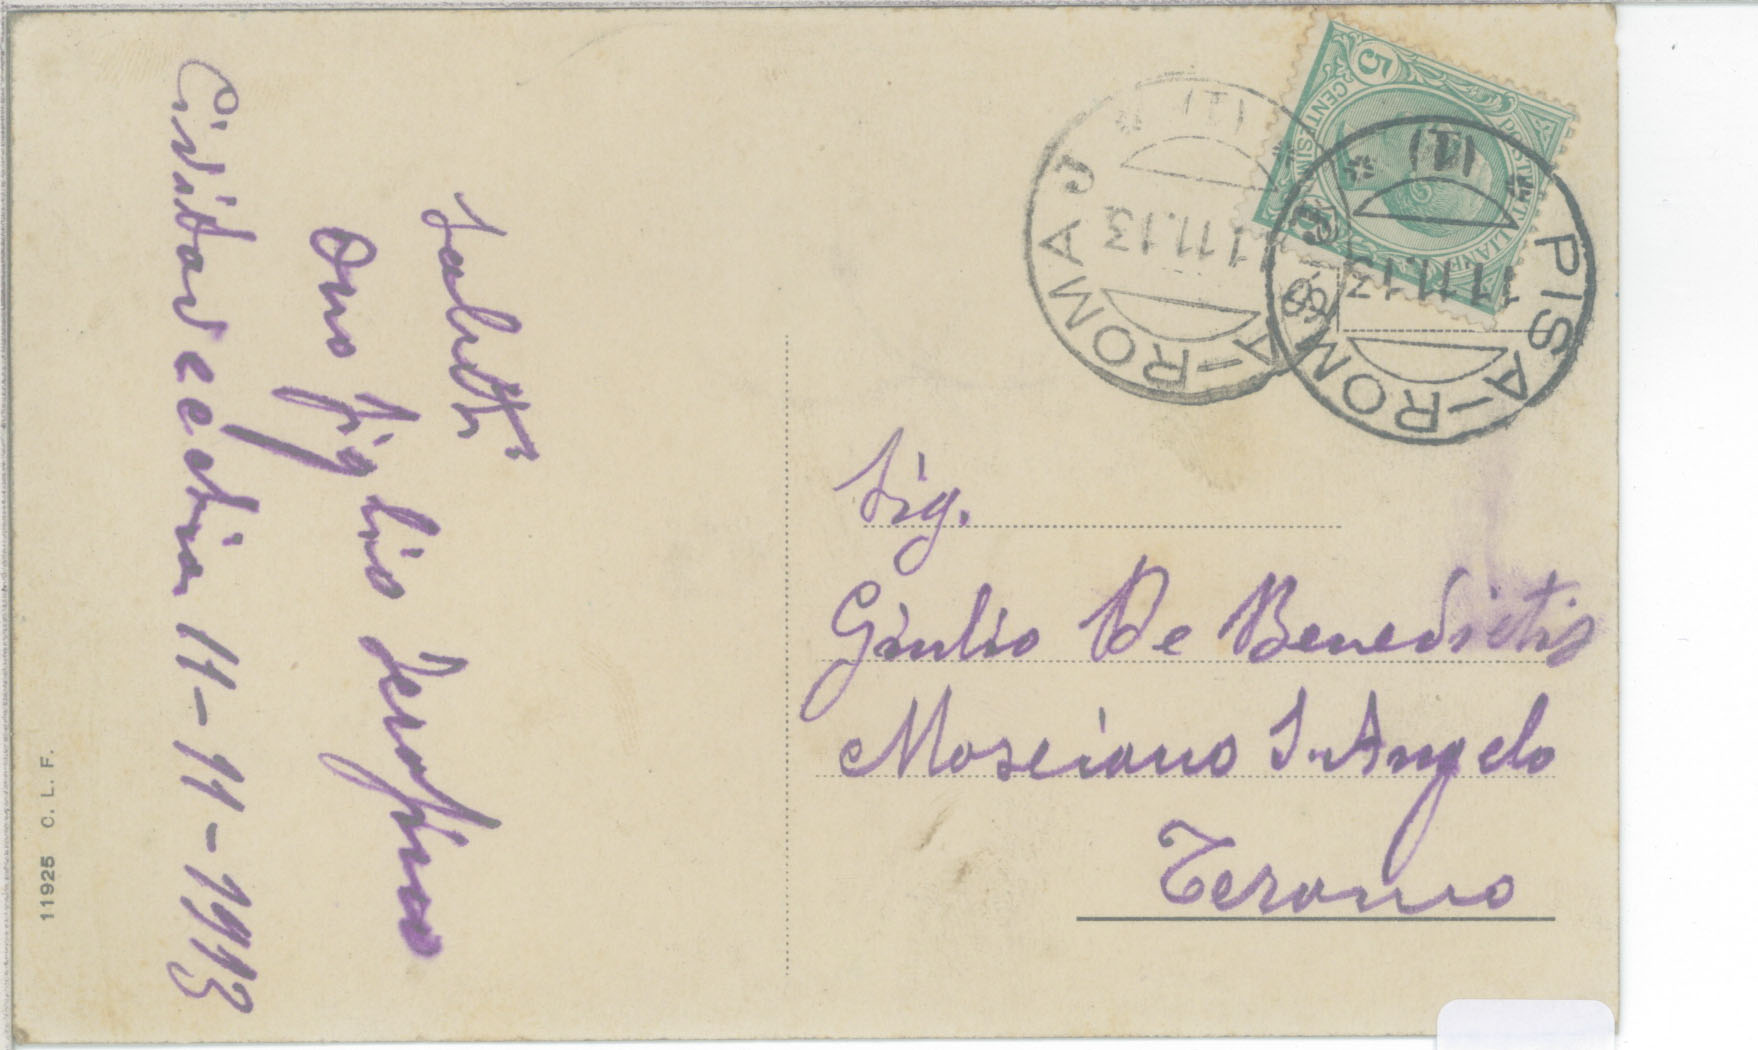 Saluti
Suo figlio Serafino
Civitavecchia 11-11-1913
Sig.
Giulio De Benedictis
Mosciano S. Angelo
Teramo
11925 C. L. F.
PISA-ROMA
(1)
11.11.13
ROMA
(1)
11.11.13
POSTE ITALIANE
CENTESIMI
5